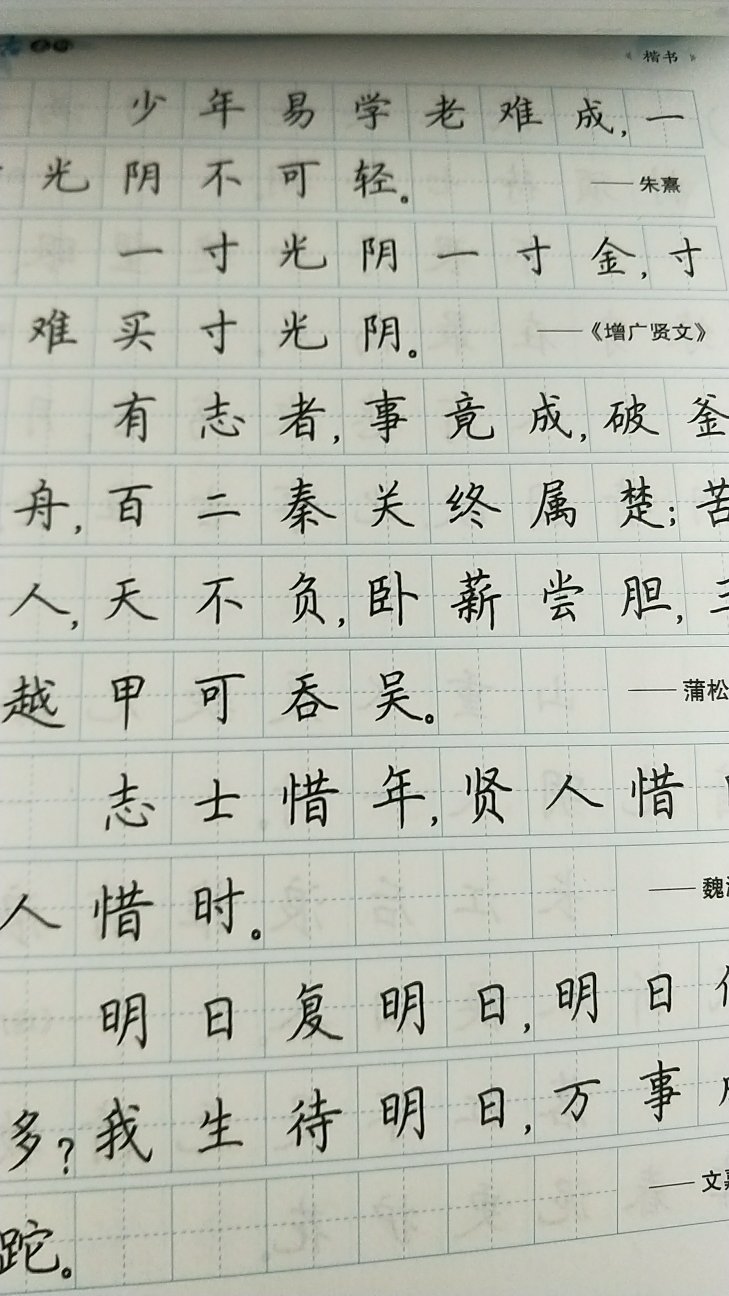 《楷书》
少年易学老难成,一
光阴不可轻。 ——朱熹
一寸光阴一寸金,寸
难买寸光阴。 ——《增广贤文》
有志者,事竟成,破釜
舟,百二秦关终属楚;苦
人,天不负,卧薪尝胆,三
越甲可吞吴。 ——蒲松
志士惜年,贤人惜
人惜时。 ——魏
明日复明日,明日
多?我生待明日,万事
跎。 ——文嘉